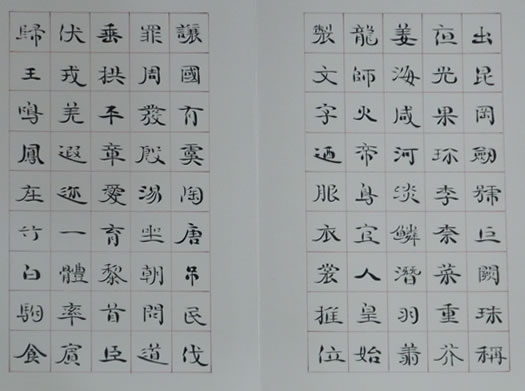 出昆岡劒號巨闕珠稱
夜光果珎李奈菜重芥
姜海咸河淡鱗潛羽翔
龍師火帝鳥官人皇始
製文字迺服衣裳推位
讓國有虞陶唐吊民伐
罪周發殷湯坐朝問道
垂拱平章愛育黎首臣
伏戎羌遐迩一體率賓
歸王鳴鳳在竹白駒食